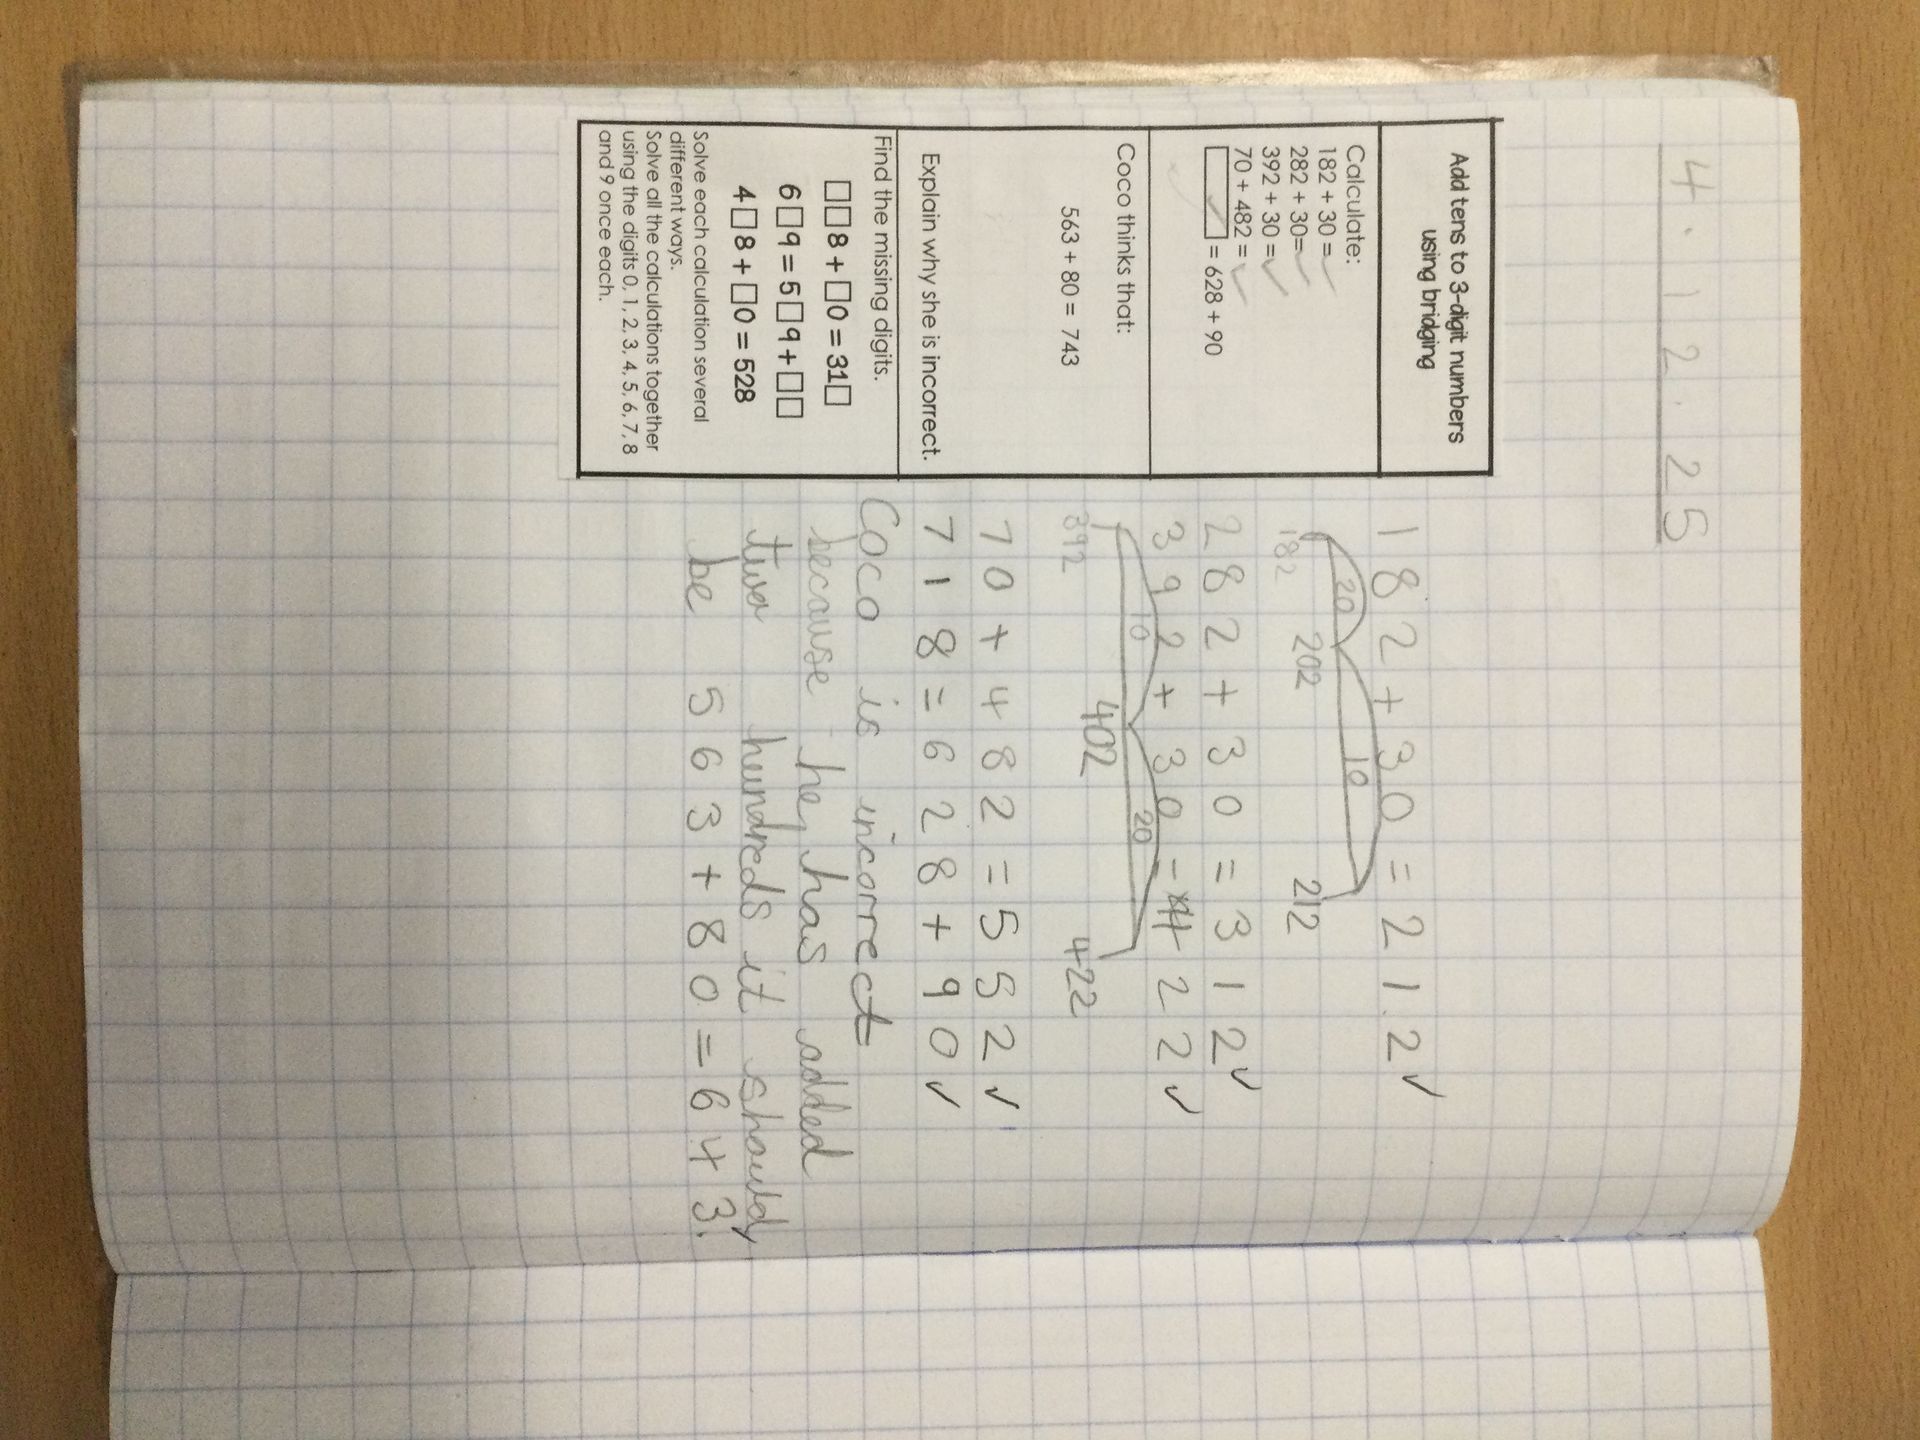 4.12.25
Add tens to 3-digit numbers
using bridging
Calculate:
182 + 30 =
282 + 30=
392 + 30 =
70 + 482 =
□ = 628 + 90
Coco thinks that:
563 + 80 = 743
Explain why she is incorrect.
Find the missing digits.
□□8 + □0 = 31□
6□9 = 5□9 + □□
4□8 + □0 = 528
Solve each calculation several
different ways.
Solve all the calculations together
using the digits 0, 1, 2, 3, 4, 5, 6, 7, 8
and 9 once each.
182+30=212
20 10
182 202 212
282+30=312
392+30=422
10 20
392 402 422
70+482=552
718=628+90
Coco is incorrect
because hey has added
two hundreds it should
be 563+80=643.